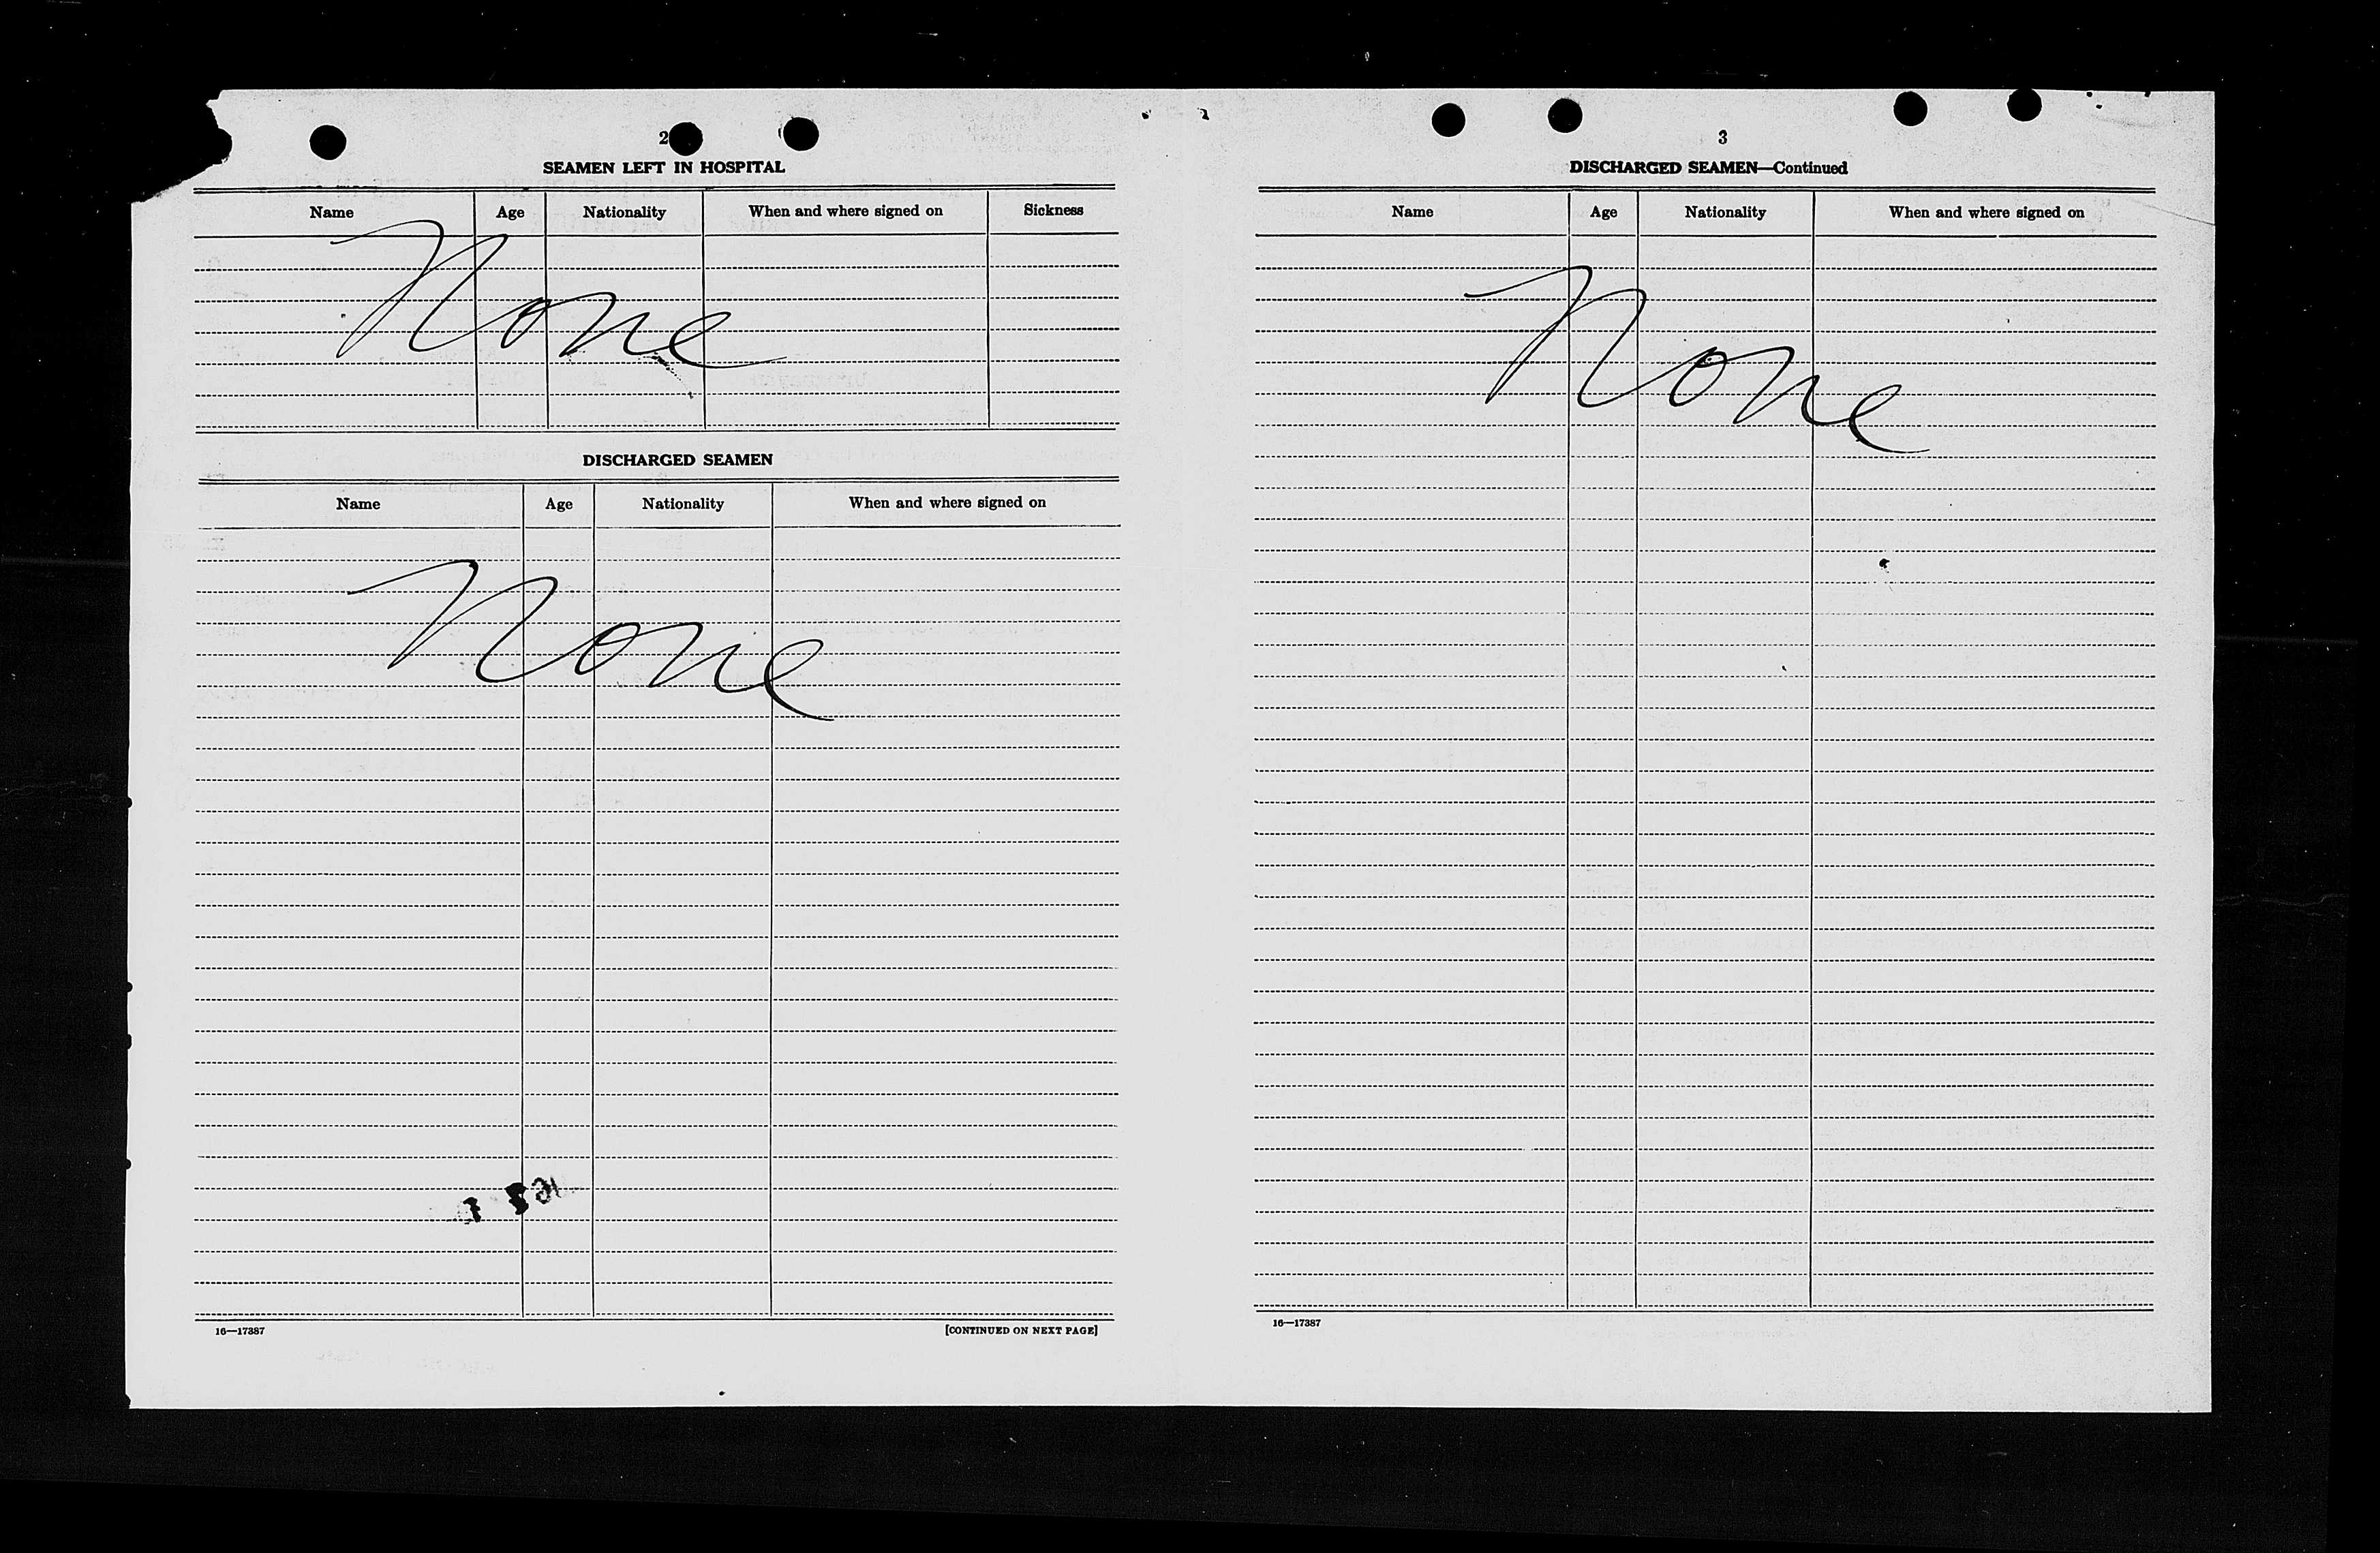 2
SEAMEN LEFT IN HOSPITAL
Name Age Nationality When and where signed on Sickness
None
DISCHARGED SEAMEN
Name Age Nationality When and where signed on
None
16—17387 [CONTINUED ON NEXT PAGE]
3
DISCHARGED SEAMEN—Continued
Name Age Nationality When and where signed on
None
16—17387